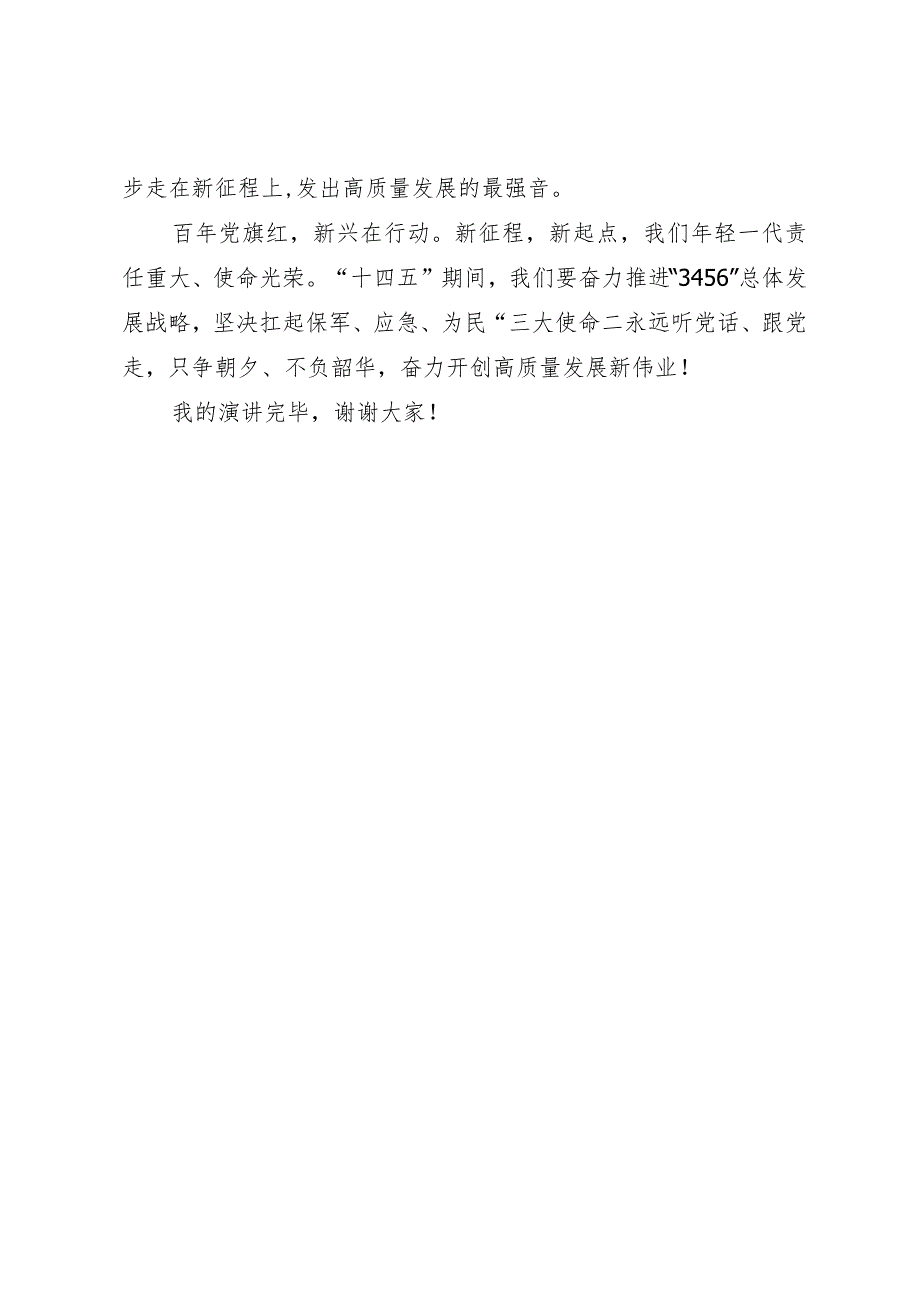 步走在新征程上,发出高质量发展的最强音。
百年党旗红，新兴在行动。新征程，新起点，我们年轻一代责
任重大、使命光荣。“十四五”期间，我们要奋力推进“3456”总体发
展战略，坚决扛起保军、应急、为民“三大使命二永远听党话、跟党
走，只争朝夕、不负韶华，奋力开创高质量发展新伟业！
我的演讲完毕，谢谢大家！